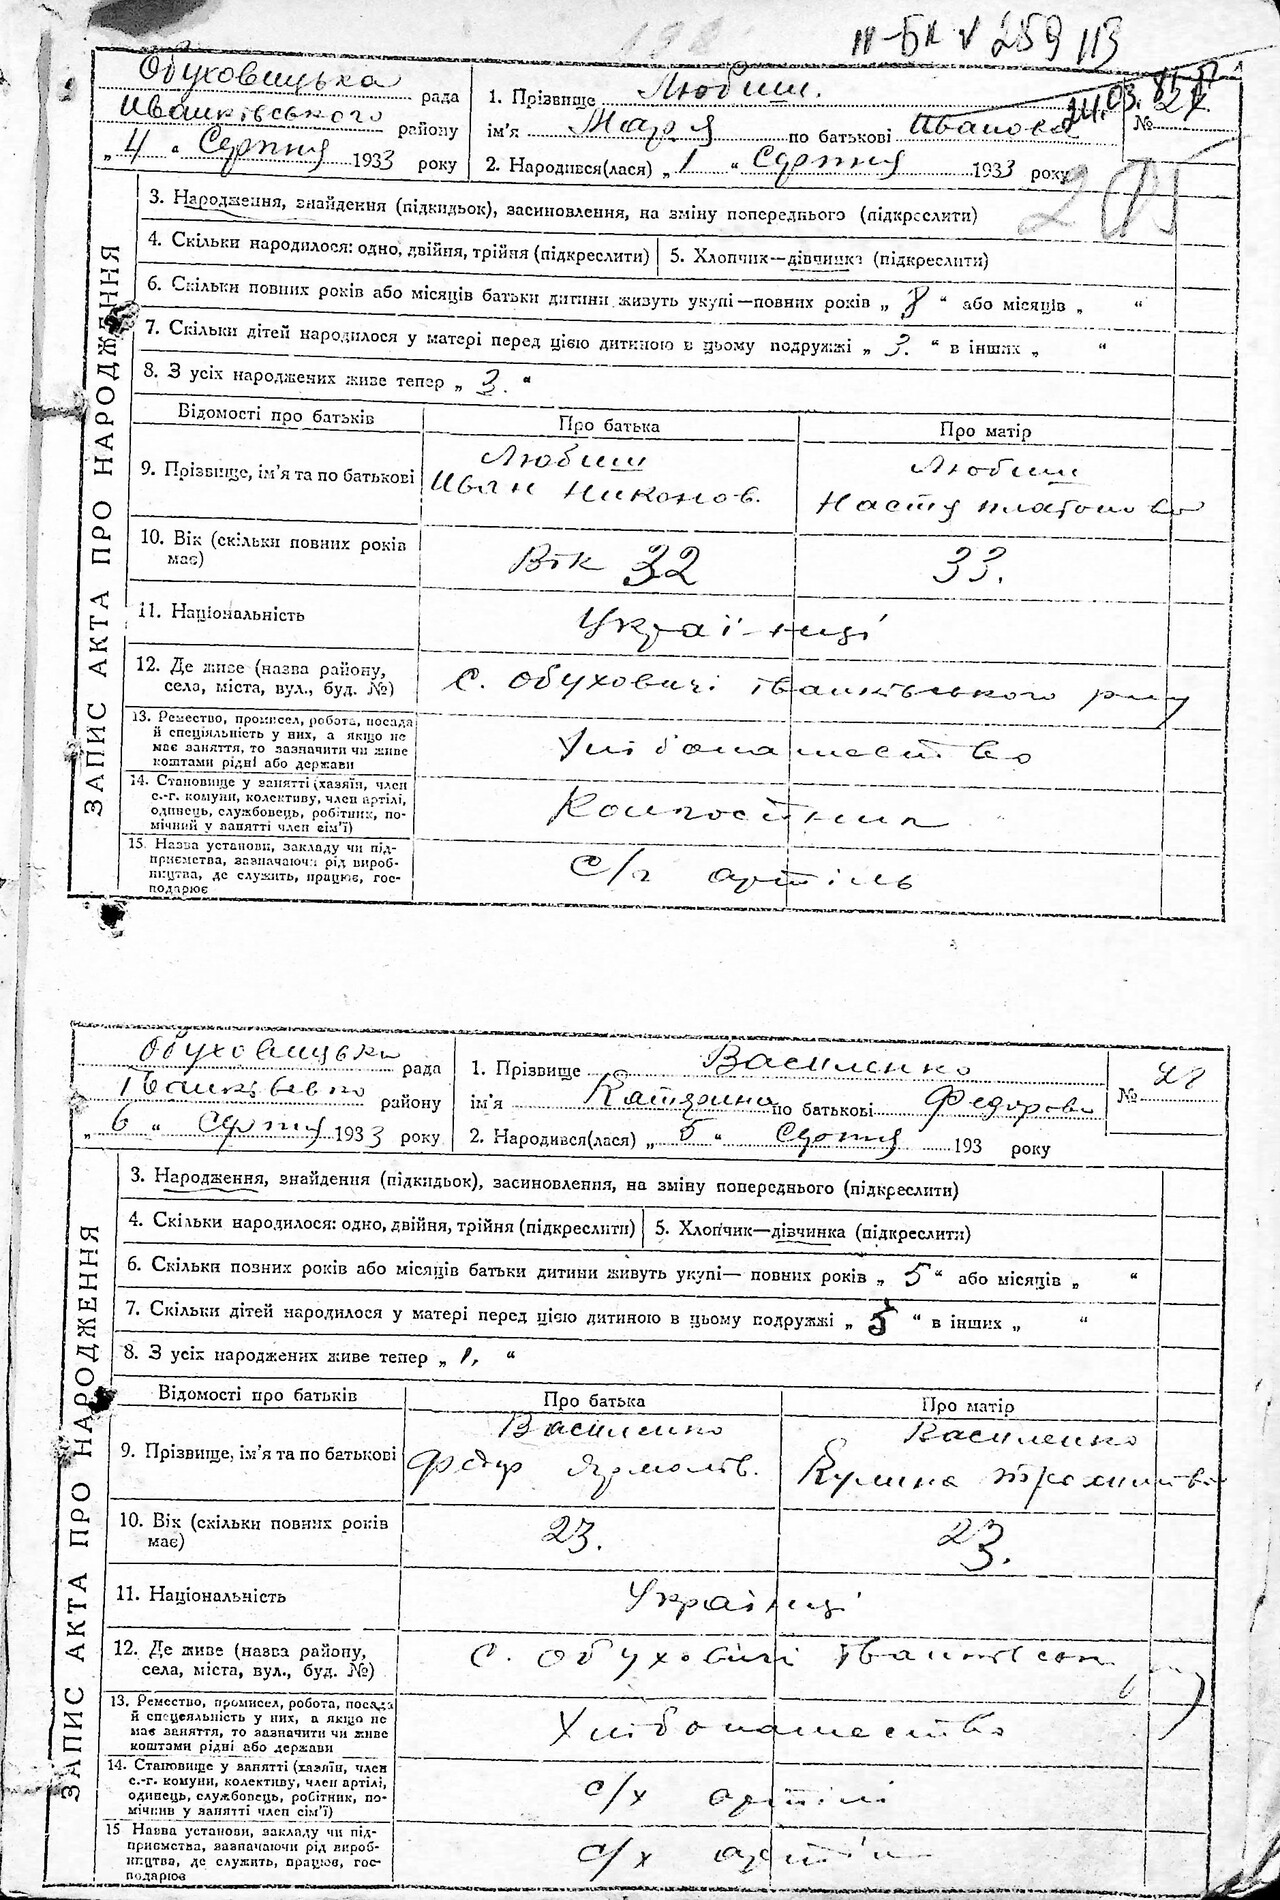 ІІ-БК № 259113
24.03.81
Обуховицька рада
Иванківського району
„ 4 “ Серпня 1933 року
1. Прізвище Любиш.
ім'я Марія по батькові Иванова
2. Народився(лася) „ 1 “ Серпня 1933 року
№ 27
ЗАПИС АКТА ПРО НАРОДЖЕННЯ
3. Народження, знайдення (підкидьок), засиновлення, на зміну попереднього (підкреслити)
4. Скільки народилося: одно, двійня, трійня (підкреслити)
5. Хлопчик—дівчинка (підкреслити)
6. Скільки повних років або місяців батьки дитини живуть укупі—повних років „ 8 “ або місяців „ “
7. Скільки дітей народилося у матері перед цією дитиною в цьому подружжі „ 3. “ в інших „ “
8. З усіх народжених живе тепер „ 3. “
Відомості про батьків
Про батька
Про матір
9. Прізвище, ім'я та по батькові
Любиш
Иван Никонов.
Любиш
Настя Платонова
10. Вік (скільки повних років
має)
Вік 32
33.
11. Національність
Українці
12. Де живе (назва району,
села, міста, вул., буд. №)
с. Обуховичі Іванківського р-ну
13. Ремество, промисел, робота, посада
й спеціяльність у них, а якщо не
має заняття, то зазначити чи живе
коштами рідні або держави
Хлібопашество
14. Становище у занятті (хазяїн, член
с.-г. комуни, колективу, член артілі,
одинець, службовець, робітник, по-
мічний у занятті член сім'ї)
Колгоспник
15. Назва установи, закладу чи під-
приємства, зазначаючи рід вироб-
ництва, де служить, працює, гос-
подарює
с/г артіль
Обуховицька рада
Іванківсько району
„ 6 “ Серпня 1933 року
1. Прізвище Василенко
ім'я Катерина по батькові Федорова
2. Народився(лася) „ 5 “ Серпня 193 року
№
ЗАПИС АКТА ПРО НАРОДЖЕННЯ
3. Народження, знайдення (підкидьок), засиновлення, на зміну попереднього (підкреслити)
4. Скільки народилося: одно, двійня, трійня (підкреслити)
5. Хлопчик—дівчинка (підкреслити)
6. Скільки повних років або місяців батьки дитини живуть укупі— повних років „ 5 “ або місяців „ “
7. Скільки дітей народилося у матері перед цією дитиною в цьому подружжі „ “ в інших „ “
8. З усіх народжених живе тепер „ 1, “
Відомості про батьків
Про батька
Про матір
9. Прізвище, ім'я та по батькові
Василенко
Федір Ярмолів.
Василенко
Кулина
10. Вік (скільки повних років
має)
23.
23.
11. Національність
Українці
12. Де живе (назва району,
села, міста, вул., буд. №)
с. Обуховичі Іванківськ р-ну
13. Ремество, промисел, робота, посада
й спецеяльність у них, а якщо не
має заняття, то зазначити чи живе
коштами рідні або держави
Хлібопашество
14. Становище у занятті (хазяїн, член
с.-г. комуни, колективу, член артілі,
одинець, службовець, робітник, по-
мічник у занятті член сім'ї)
с/х артілі
15 Назва установи, закладу чи під-
приємства, зазначаючи рід вироб-
ництва, де служить, працює, гос-
подарює
с/х артіль